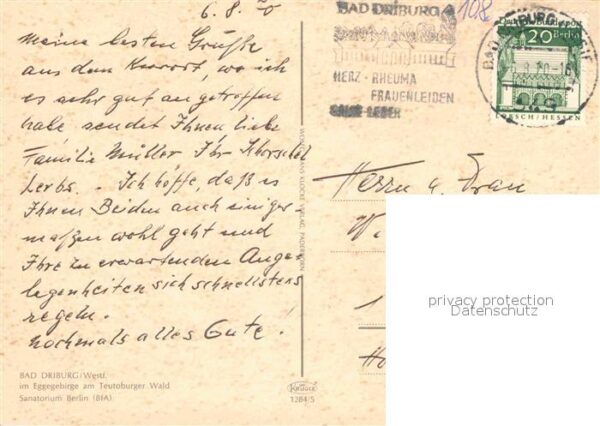 6.8.70
Meine besten Grüße
aus dem Kurort, wo ich
es sehr gut angetroffen
habe sendet Ihnen liebe
Familie Müller Ihr
Herbs. - Ich hoffe, daß es
Ihnen Beiden auch einiger-
maßen wohl geht und
Ihre zu erwartenden Ange-
legenheiten sich schnellstens
regeln.
Nochmals alles Gute!
BAD DRIBURG/Westf.
im Eggegebirge am Teutoburger Wald
Sanatorium Berlin (BfA)
KRÜGER
1284/5
BAD DRIBURG
HERZ - RHEUMA
FRAUENLEIDEN
GALLE-LEBER
108
Deutsche Bundespost
20 Berlin
LORSCH/HESSEN
BAD DRIBURG
Herrn u. Frau
W
1
privacy protection
Datenschutz